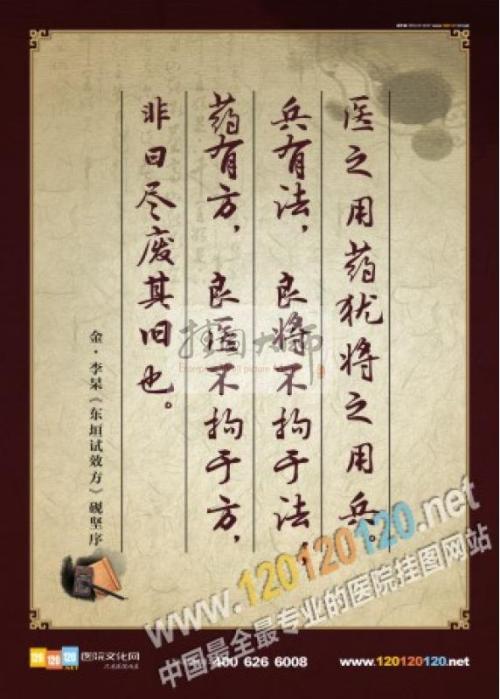 医之用药犹将之用兵。
兵有法，良将不拘于法，
药有方，良医不拘于方，
非曰尽废其旧也。
金·李杲《东垣试效方》砚坚序
挂图大师
www.120120120.net
中国最全最专业的医院挂图网站
120 120 120 医院文化网
.NET
400 626 6008
www.120120120.net